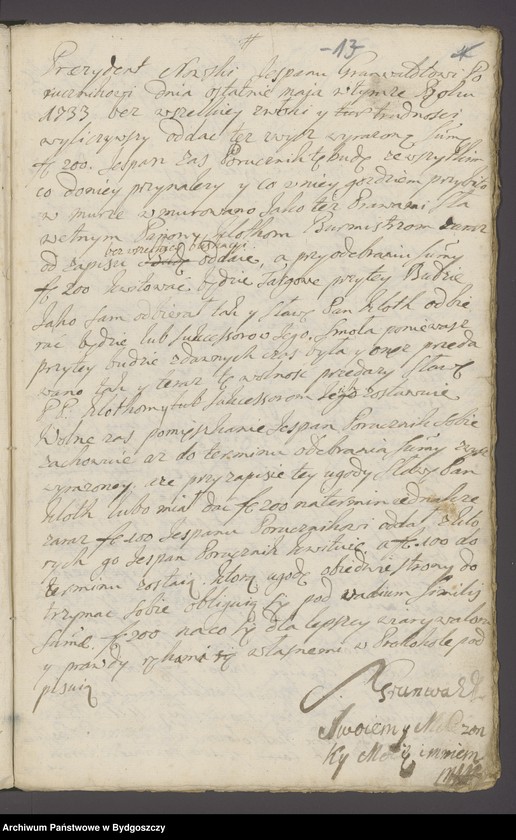 #
-13-
Prezydent Nowski Jespanu Grunwaldtowi Po
rucznikowi dnia ostatnie maja w tymze Roku
1733 bez wszelkiey zwłoki y trudnosci
wyliczywszy oddac tez zwyż wyrazoną summę
fl 200. Jespan zas Porucznik tę budę ze wszystkim
co doniey przynalezy y co w niey gozdziem przybito
w murze wmurowano Jako tez Prawami Sła
wetnym Panom Klothom Burmistrzom zaraz
bez wszelkiey
od zapisu oddaie, a przy odebraniu summy
fl 200 kwitować będzie Targowe przy tey Budzie
Jako sam odbierał tak y Sławę Pan Kloth odbie
rac będzie lub Sukcessorowie Jego. Smoła poniewasz
przy tey budzie zdawnych czas była y onę przeda
wano tak y teraz tę wolnosc przedazy Sławę
PP. Klothom lub Sukcessorom Jego zostawuie
Wolne zas pomięszkanie Jespan Porucznik Sobie
zachowuie az do terminu odebrania summy zwyż
wyrazoney. ze przy zapisie tey ugody Sławę Pan
Kloth lubo miał dac fl 200 na termin iednakze
zaraz fl 100 Jespanu Porucznikowi oddał z kto
rych go Jespan Porucznik kwituie, a fl 100 do
terminu zostaią. Ktorą ugodę obiedwie strony do
trzymac Sobie obliguią się pod vadium similis
summæ fl 200 na co się dla lepszey wiary waloru
y prawdy rękami własnemi w Protokole pod
pisuią
Grunwaldt
Swoiem y Małzon
ky Moiey imniem